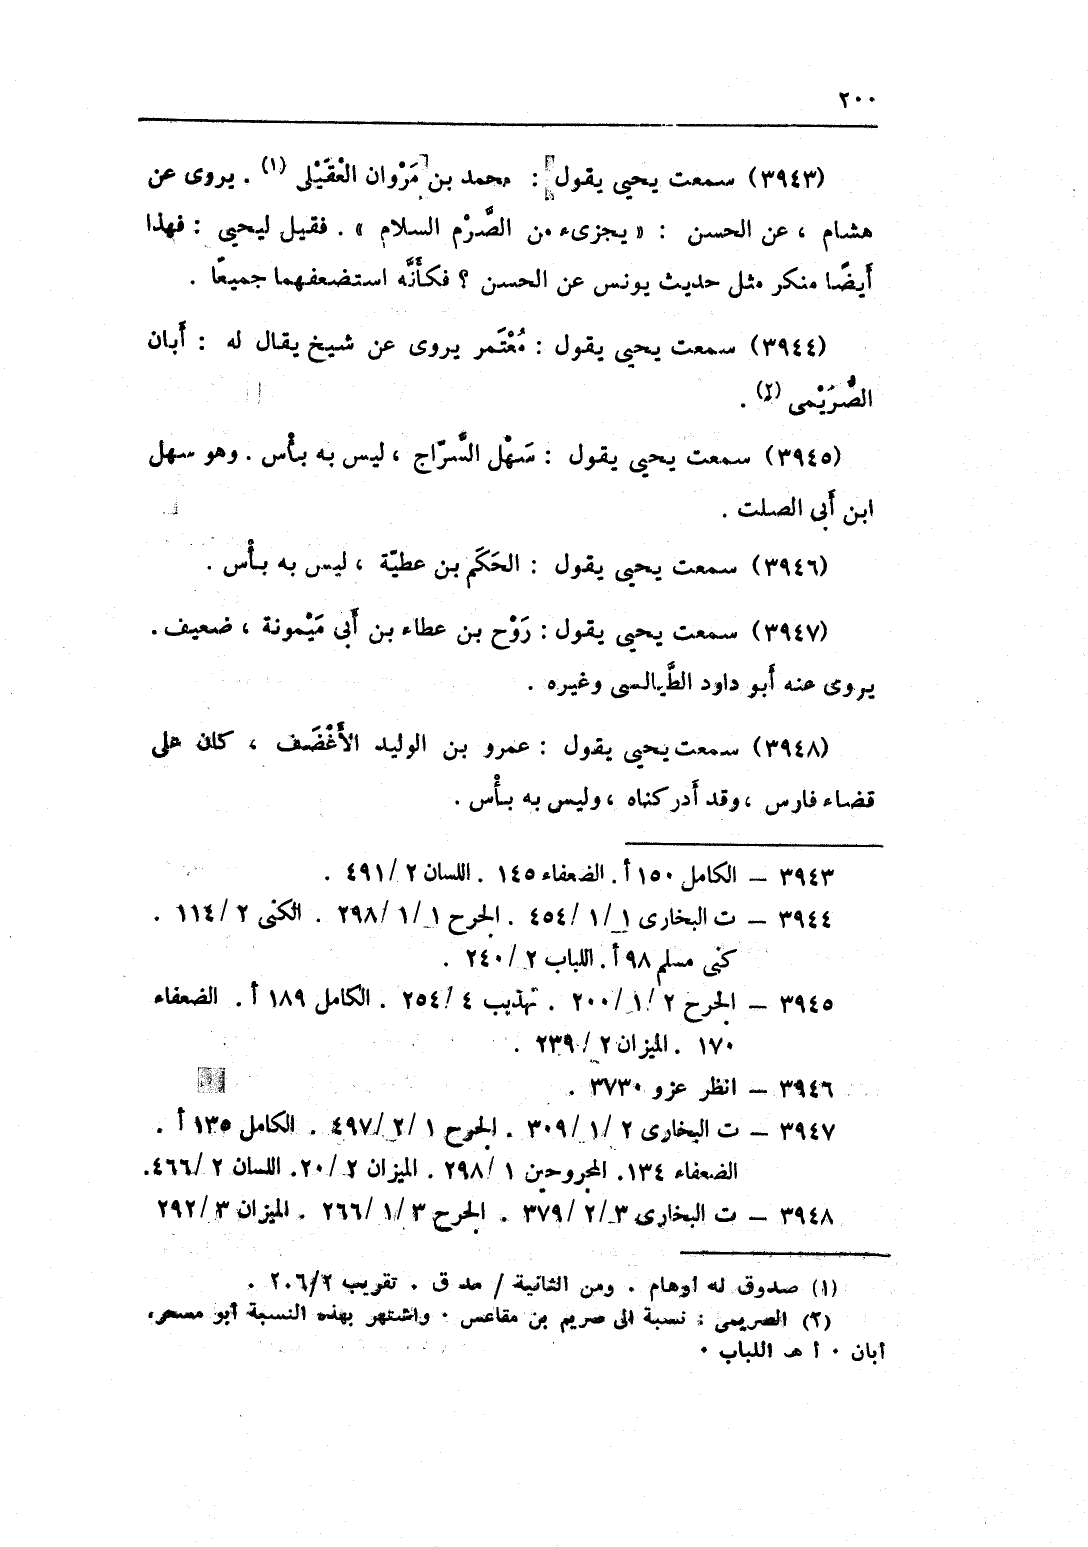 ٢٠٠
(٣٩٤٣) سمعت يحيى يقول : محمد بن مَرْوان العْقَيْلى (١) . يروى عن
هشام ، عن الحسن : « يجزىء من الصَّرْم السلام » . فقيل ليحيى : فهذا
أَيضًا منكر مثل حديث يونس عن الحسن ؟ فكأَنَّه استضعفهما جميعًا .
(٣٩٤٤) سمعت يحيى يقول : مُعْتَمر يروى عن شيخ يقال له : أَبان
الصُّرَيْمى (٢) .
(٣٩٤٥) سمعت يحيى يقول : سَهْل السَّرّاج ، ليس به بأْس . وهو سهل
ابن أَبى الصلت .
(٣٩٤٦) سمعت يحيى يقول : الحَكَم بن عطيّة ، ليس به بأْس .
(٣٩٤٧) سمعت يحيى يقول : رَوْح بن عطاء بن أَبى مَيْمونة ، ضعيف .
يروى عنه أَبو داود الطَّيالسى وغيره .
(٣٩٤٨) سمعت يحيى يقول : عمرو بن الوليد الأَغْضَف ، كان على
قضاء فارس ، وقد أَدركناه ، وليس به بأْس .
٣٩٤٣ – الكامل ١٥٠ أ . الضعفاء ١٤٥ . اللسان ٢ / ٤٩١ .
٣٩٤٤ – ت البخارى ١ / ١ / ٤٥٤ . الجرح ١ / ١ / ٢٩٨ . الكنى ٢ / ١١٤ .
كنى مسلم ٩٨ أ . اللباب ٢ / ٢٤٠ .
٣٩٤٥ – الجرح ٢ / ١ / ٢٠٠ . تهذيب ٤ / ٢٥٤ . الكامل ١٨٩ أ . الضعفاء
١٧٠ . الميزان ٢ / ٢٣٩ .
٣٩٤٦ – انظر عزو ٣٧٣٠ .
٣٩٤٧ – ت البخارى ٢ / ١ / ٣٠٩ . الجرح ١ / ٢ / ٤٩٧ . الكامل ١٣٥ أ .
الضعفاء ١٣٤ . المجروحين ١ / ٢٩٨ . الميزان ٢ / ٢٠ . اللسان ٢ / ٤٦٦ .
٣٩٤٨ – ت البخارى ٣ / ٢ / ٣٧٩ . الجرح ٣ / ١ / ٢٦٦ . الميزان ٣ / ٢٩٢
(١) صدوق له أوهام . ومن الثانية / مد ق . تقريب ٢٠٦/٢ .
(٢) الصريمى : نسبة الى صريم بن مقاعس . واشتهر بهذه النسبة أبو مسحر،
أبان . أ هـ اللباب .